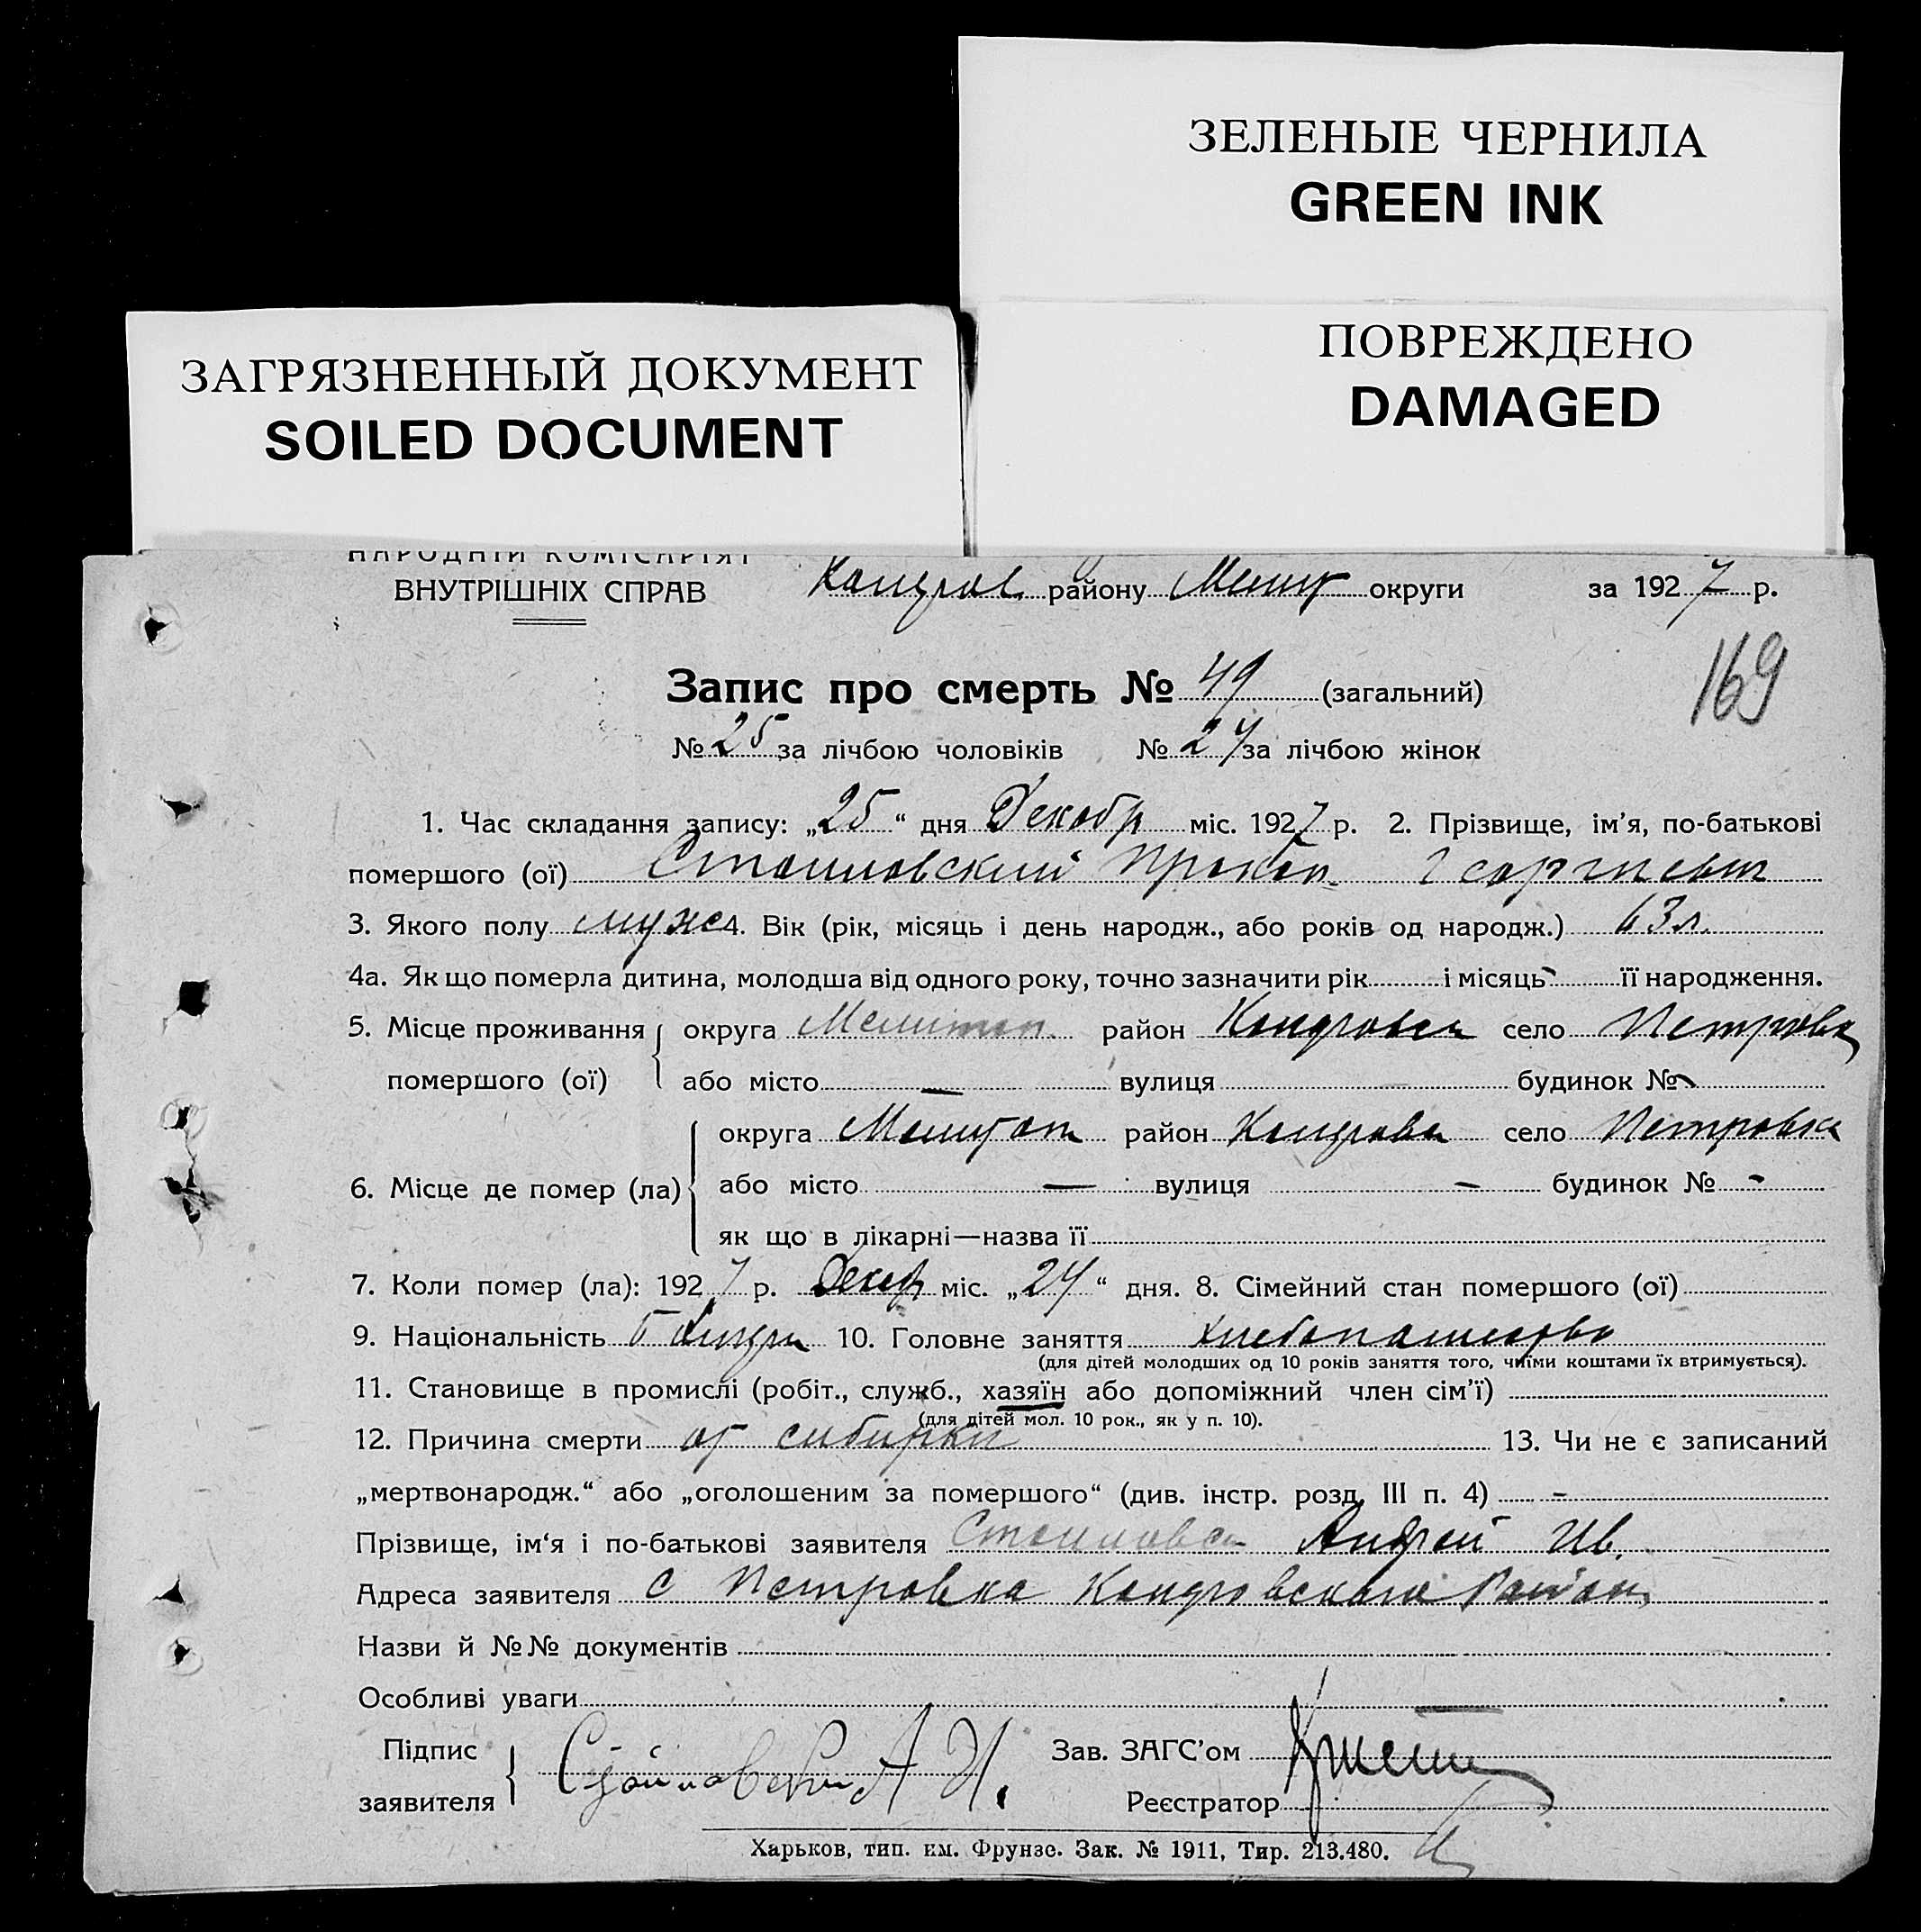 ЗЕЛЕНЫЕ ЧЕРНИЛА
GREEN INK
ПОВРЕЖДЕНО
DAMAGED
ЗАГРЯЗНЕННЫЙ ДОКУМЕНТ
SOILED DOCUMENT
НАРОДНІЙ КОМІСАРІЯТ
ВНУТРІШНІХ СПРАВ району округи за 1927 р.
169
Запис про смерть № 49 (загальний)
№ 25 за лічбою чоловіків № 24 за лічбою жінок
1. Час складання запису: „25“ дня Декабр міс. 1927 р. 2. Прізвище, ім’я, по-батькові
помершого (ої)
3. Якого полу муж 4. Вік (рік, місяць і день народж., або років од народж.) 63 л.
4а. Як що померла дитина, молодша від одного року, точно зазначити рік і місяць - її народження.
5. Місце проживання помершого (ої) округа Мелитоп район село Петровка
або місто — вулиця будинок № -
6. Місце де помер (ла) округа Мелитоп район село Петровка
або місто — вулиця - будинок № -
як що в лікарні—назва її
7. Коли помер (ла): 1927 р. Декабр міс. „24“ дня. 8. Сімейний стан помершого (ої)
9. Національність 10. Головне заняття хлебопашество
(для дітей молодших од 10 років заняття того, чиїми коштами їх втримується).
11. Становище в промислі (робіт., служб., хазяїн або допоміжний член сім’ї)
(для дітей мол. 10 рок., як у п. 10).
12. Причина смерти от сибирки 13. Чи не є записаний
„мертвонародж.“ або „оголошеним за помершого“ (див. інстр. розд. III п. 4) -
Прізвище, ім‘я і по-батькові заявителя Андрей Ив.
Адреса заявителя с Петровка
Назви й №№ документів
Особливі уваги
Підпис заявителя А И. Зав. ЗАГС’ом
Реєстратор
Харьков, тип. им. Фрунзе. Зак. № 1911, Тир. 213.480.